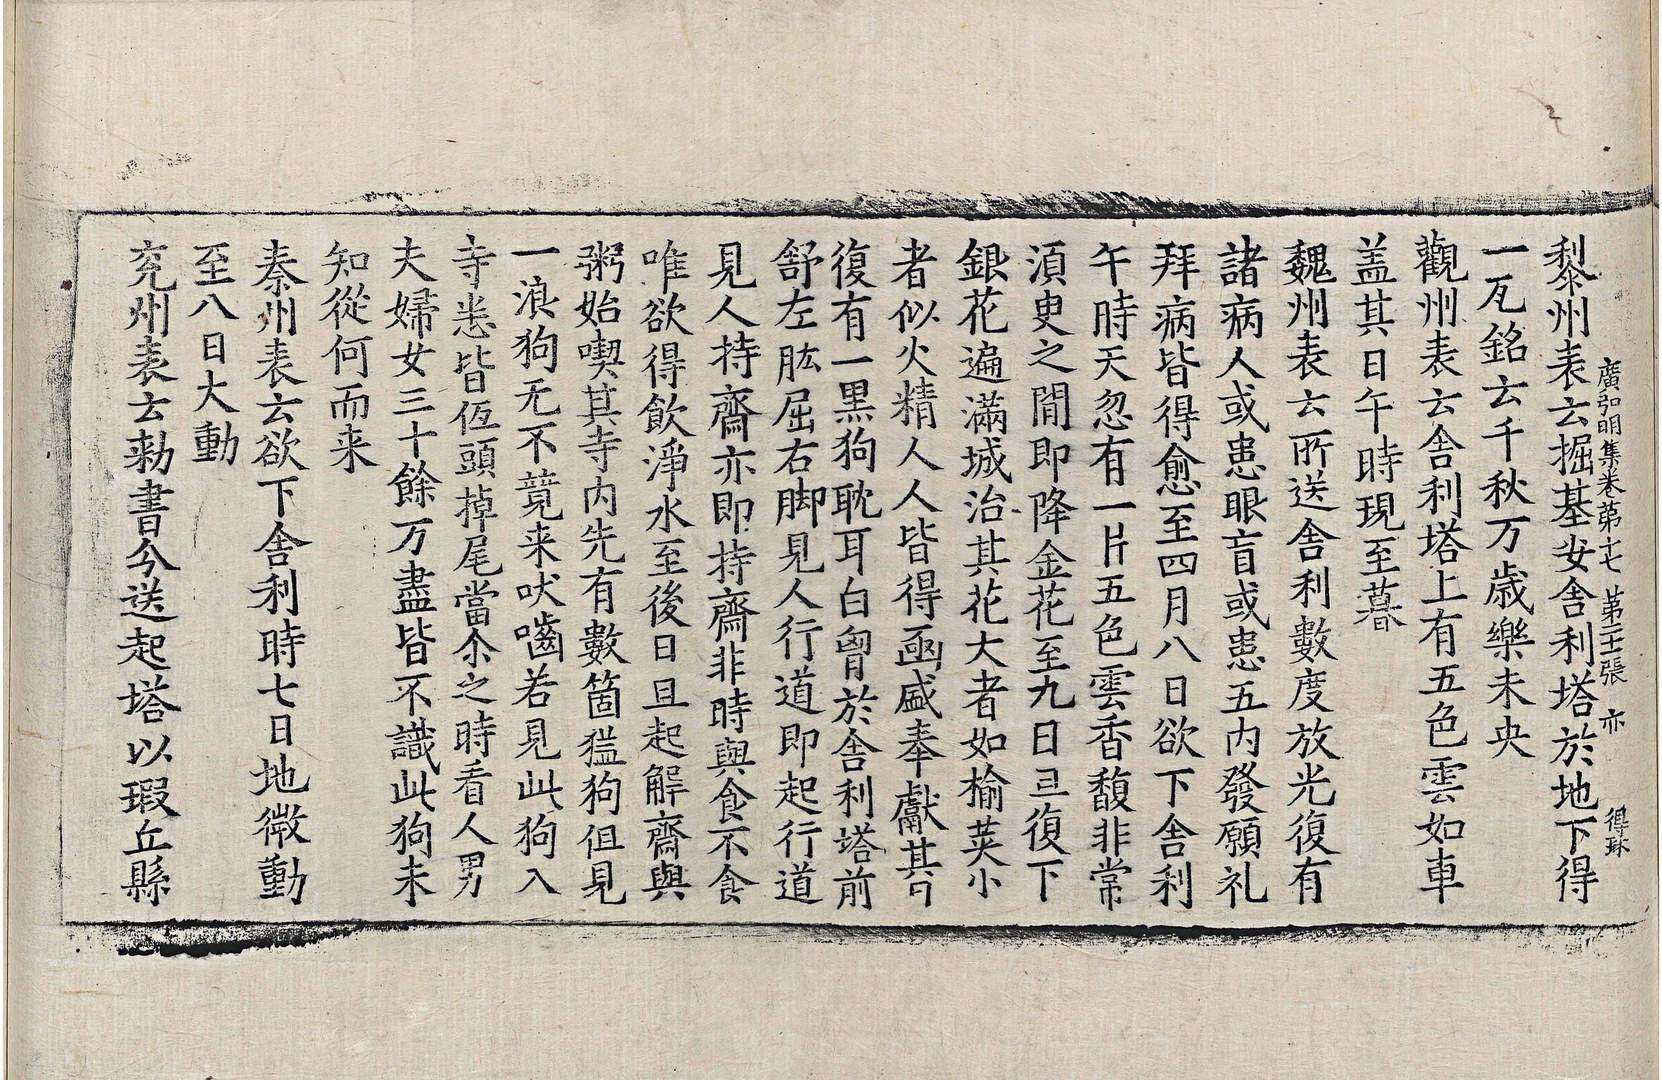 廣弘明集卷第十七 第二十張 亦 得珠
黎州表云掘基安舍利塔於地下得
一瓦銘云千秋万歳樂未央
觀州表云舍利塔上有五色雲如車
盖其日午時現至暮
魏州表云所送舍利數度放光復有
諸病人或患眼盲或患五内發願礼
拜病皆得愈至四月八日欲下舍利
午時天忽有一片五色雲香馥非常
湏臾之間即降金花至九日旦復下
銀花遍滿城治其花大者如榆莢小
者似火精人人皆得函盛奉獻其日
復有一黒狗耽耳白胷於舍利塔前
舒左肱屈右脚見人行道即起行道
見人持齋亦即持齋非時與食不食
唯欲得飲淨水至後日旦起解齋與
粥始喫其寺内先有數箇猛狗但見
一浪狗无不競来吠嚙若見此狗入
寺悉皆伍頭掉尾當尒之時看人男
夫婦女三十餘万盡皆不識此狗未
知從何而来
秦州表云欲下舍利時七日地微動
至八日大動
兖州表云勑書今送起塔以瑕丘縣